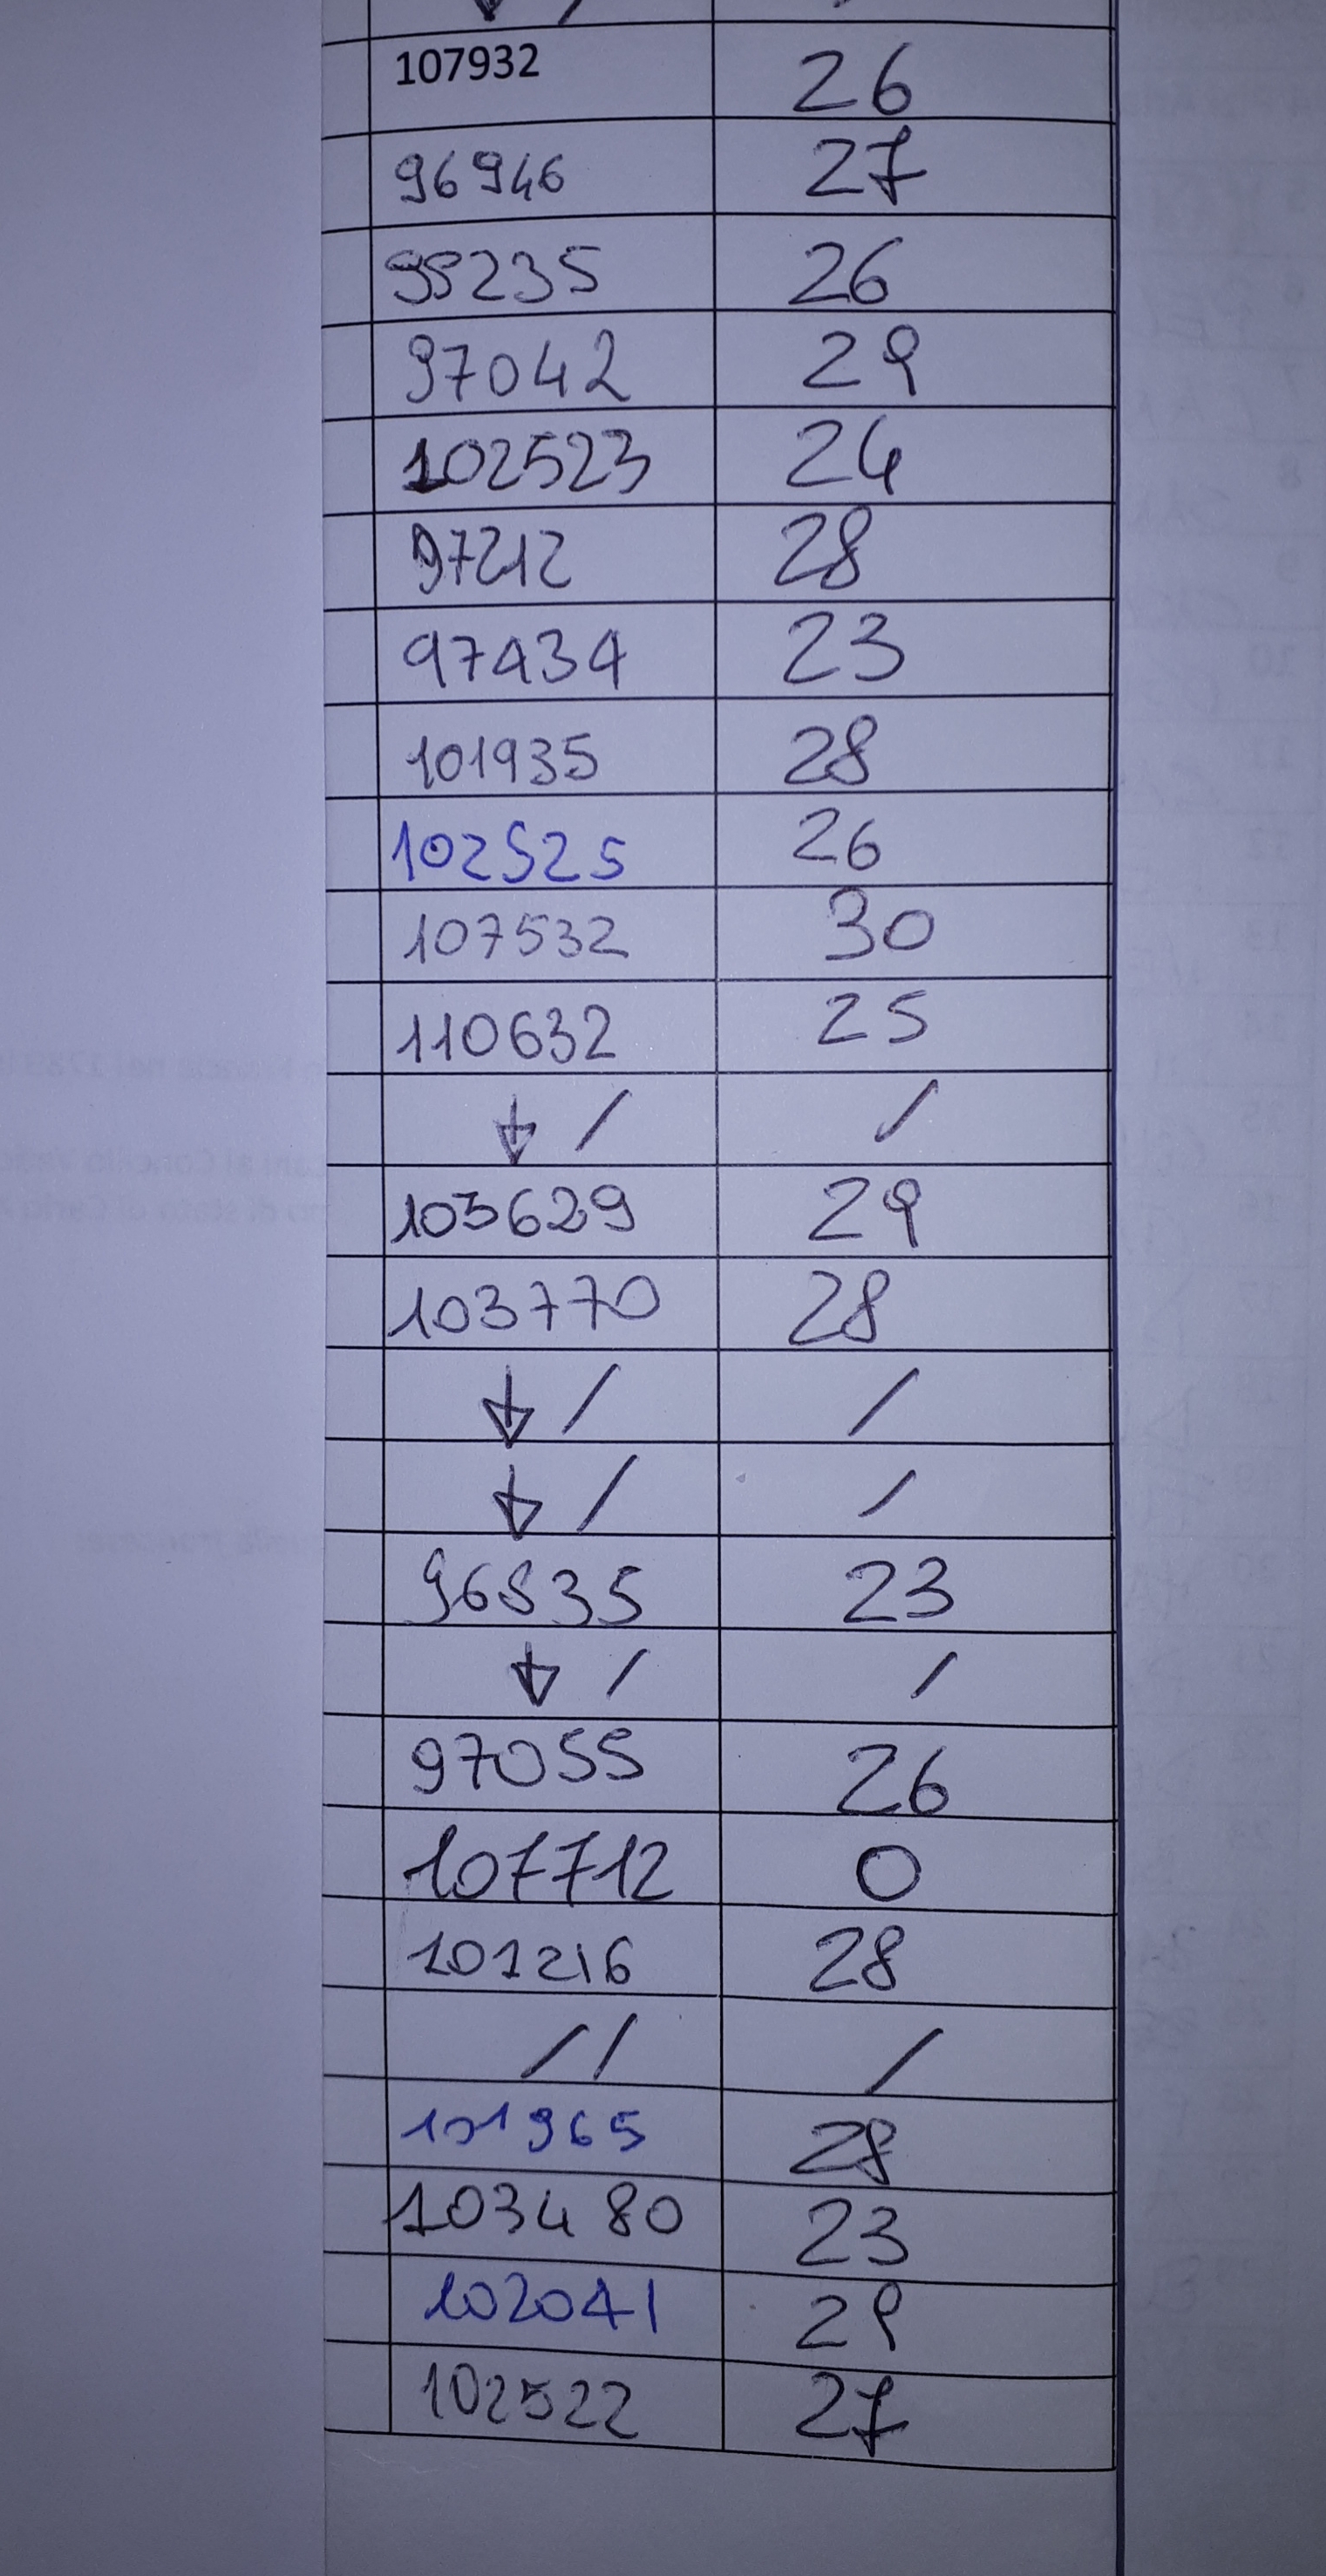 107932 26
96946 27
99235 26
97042 29
102523 24
97212 28
97434 23
101935 28
102525 26
107532 30
110632 25
↓ / /
103629 29
103770 28
↓ / /
↓ / /
96835 23
↓ / /
97055 26
107712 0
101216 28
/ / /
101965 28
103480 23
102041 29
102522 27